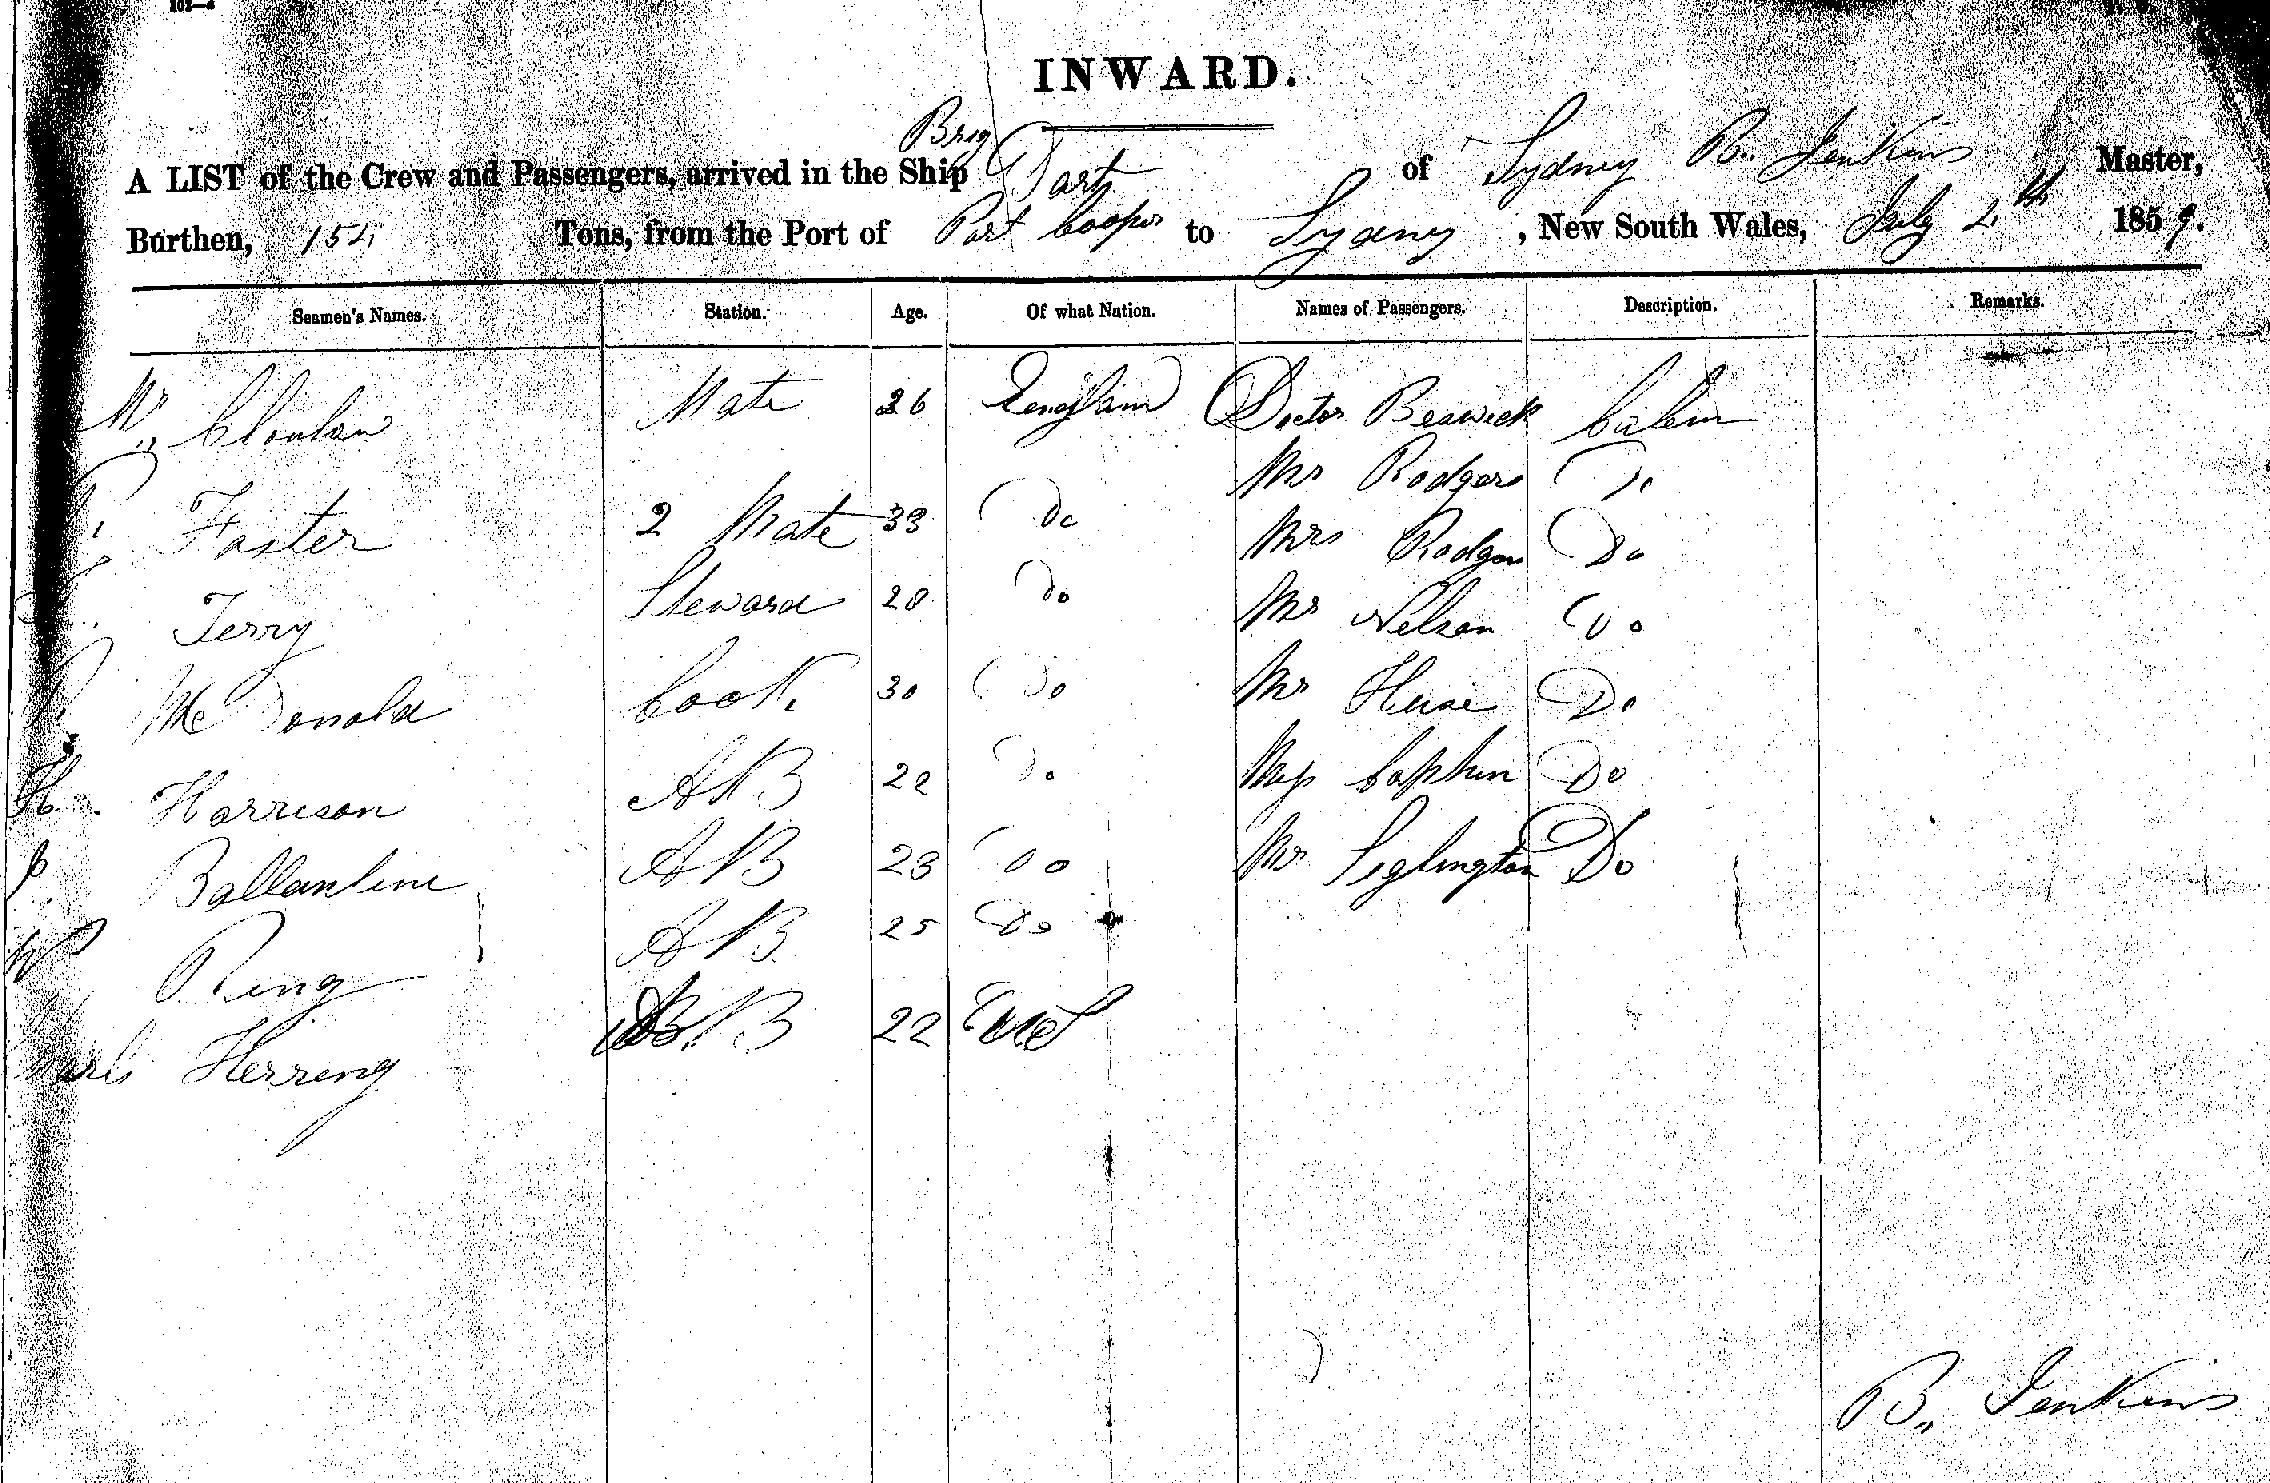 INWARD.
Brig
A LIST of the Crew and Passengers, arrived in the Ship Dart of Sydney B. Jenkins Master,
Burthen, 154 Tons, from the Port of Port Cooper to Sydney, New South Wales, July 2th 1859.
Seamen's Names. Station. Age. Of what Nation. Names of Passengers. Description. Remarks.
Mr Mate 26 Doctor Beswick Cabin
Foster 2 Mate 33 Do Mr Rodgers Do
Mrs Rodgers Do
Terry Steward 20 Do Mr Nelson Do
McDonald Cook. 30 Do Mr Do
H. Harrison AB 22 Do Do
Ballantine AB 23 Do Mr Do
W Ring AB 25 Do
Charls Herring AB 22
B. Jenkins